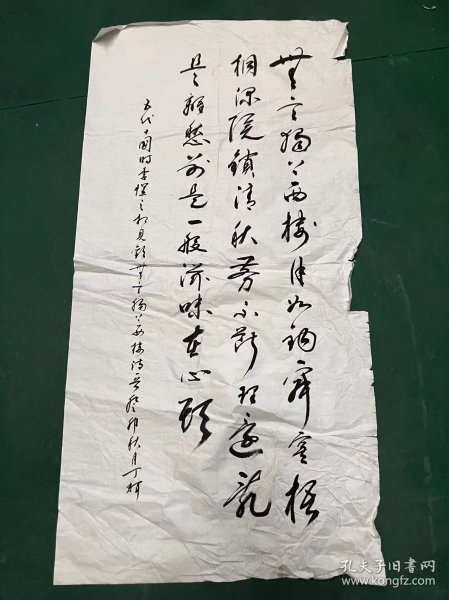 無言獨上西樓月如鉤寂寞梧
桐深院鎖清秋剪不斷理還亂
是離愁別是一般滋味在心頭
五代十國時李煜之相見歡無言獨上西樓詩意癸卯秋月丁柯
孔夫子旧书网
www.kongfz.com